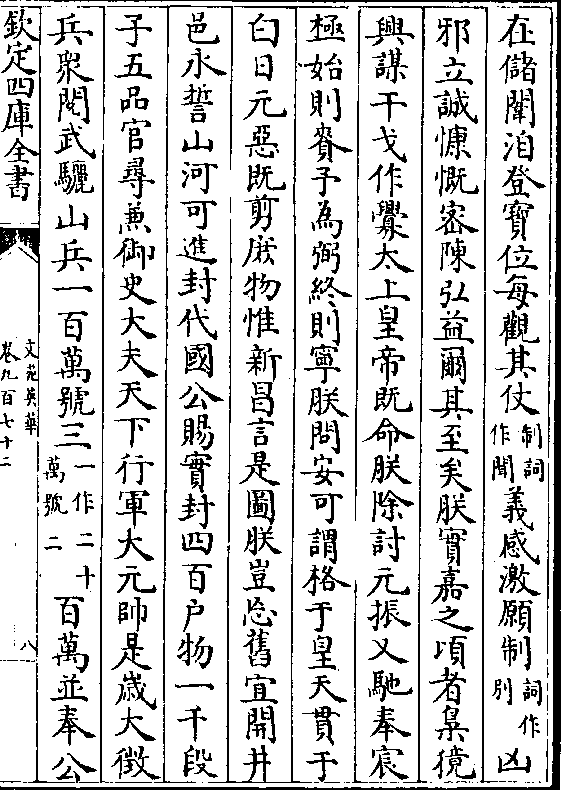 在儲闈洎登寶位每觀其仗制詞作聞義感激願制詞作別凶
邪立誠慷慨密陳弘益爾其至矣朕實嘉之頃者梟獍
興謀干戈作釁太上皇帝既命朕除討元振又馳奉宸
極始則賚予為弼終則寧朕問安可謂格于皇天貫于
白日元惡既剪庶物惟新昌言是圖朕豈忘舊宜開井
邑永誓山河可進封代國公賜實封四百户物一千段
子五品官尋兼御史大夫天下行軍大元帥是嵗大徴
兵衆閱武驪山兵一百萬號三一作二十萬號二百萬並奉公
欽定四庫全書
文苑英華
卷九百七十二
八